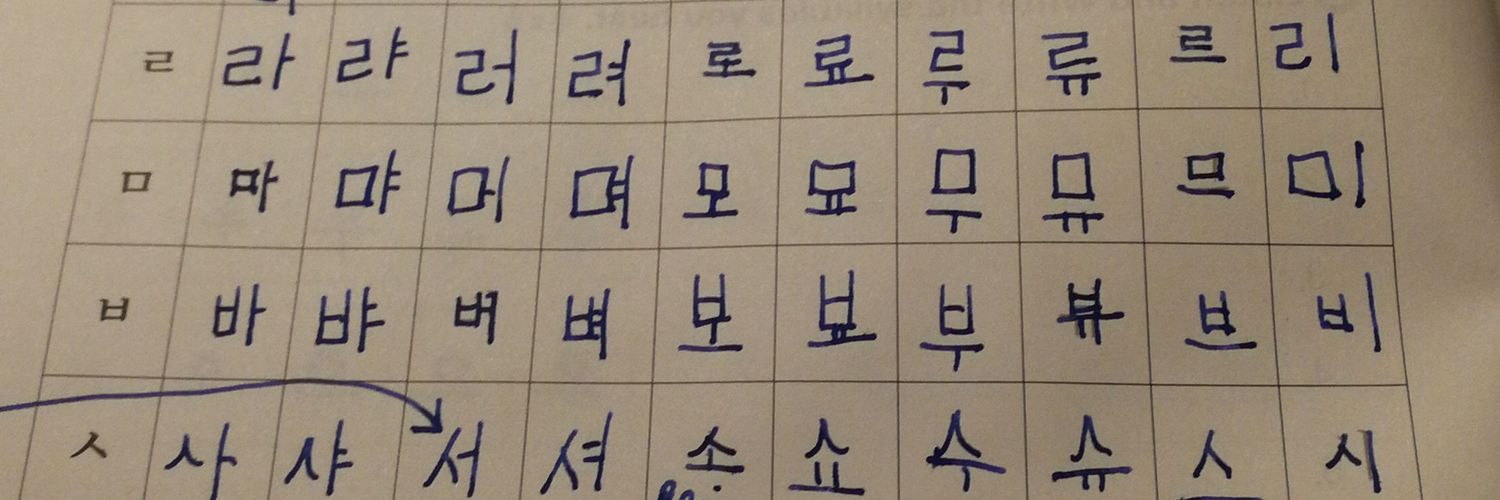 ㄹ 라 랴 러 려 로 료 루 류 르 리
ㅁ 마 먀 머 며 모 묘 무 뮤 므 미
ㅂ 바 뱌 버 벼 보 뵤 부 뷰 브 비
ㅅ 사 샤 서 셔 소 쇼 수 슈 스 시